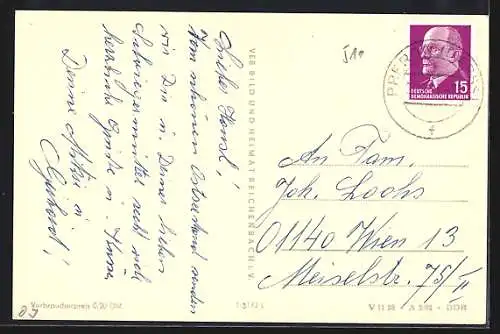 Liebe Hansl!
Vom schönen Ostseestrand senden
wir Dir u. Deiner lieben
Schwiegermutter recht viel
herzliche Grüße u. Küsse
Deine Mutti u.
Gerhard!
VEB BILD UND HEIMAT REICHENBACH i. V.
DEUTSCHE
DEMOKRATISCHE REPUBLIK
15
An Fam.
Joh. Loohs
01140 Wien 13
Meiselstr. 75/II
Verbraucherpreis 0,20 DM
V 11 28 · A 2/61 · DDR